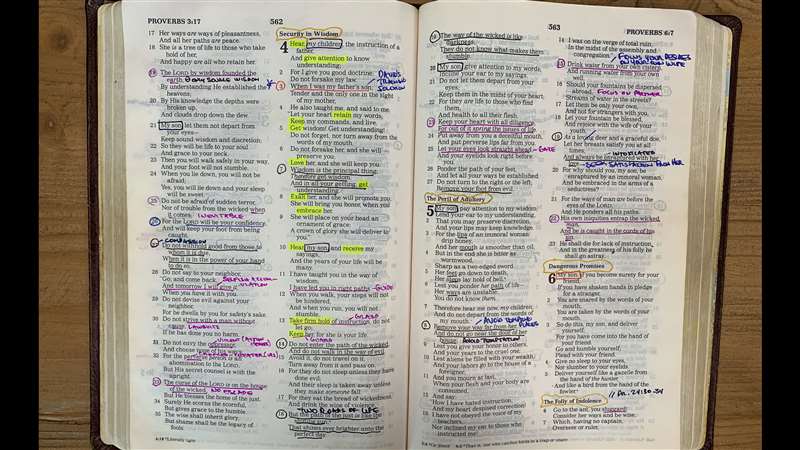 PROVERBS 3:17
562
17 Her ways are ways of pleasantness,
And all her paths are peace.
18 She is a tree of life to those who take
hold of her,
And happy are all who retain her.
19 The LORD by wisdom founded the
earth;
By understanding He established the
heavens;
20 By His knowledge the depths were
broken up,
And clouds drop down the dew.
21 My son, let them not depart from
your eyes—
Keep sound wisdom and discretion;
22 So they will be life to your soul
And grace to your neck.
23 Then you will walk safely in your way,
And your foot will not stumble.
24 When you lie down, you will not be
afraid;
Yes, you will lie down and your sleep
will be sweet.
25 Do not be afraid of sudden terror,
Nor of trouble from the wicked when
it comes; INEVITABLE
26 For the LORD will be your confidence,
And will keep your foot from being
caught.
COMPASSION
27 Do not withhold good from those to
whom it is due,
When it is in the power of your hand
to do so.
28 Do not say to your neighbor,
"Go, and come back,
And tomorrow I will give it,"
When you have it with you.
29 Do not devise evil against your
neighbor,
For he dwells by you for safety's sake.
30 Do not strive with a man without
cause, LAWSUITS
If he has done you no harm.
31 Do not envy the oppressor,
And choose none of his ways;
32 For the perverse person is an
abomination to the LORD,
But His secret counsel is with the
upright.
33 The curse of the LORD is on the house
of the wicked, NO ESCAPE
But He blesses the home of the just.
34 Surely He scorns the scornful,
But gives grace to the humble.
35 The wise shall inherit glory,
But shame shall be the legacy of
fools.
Security in Wisdom
4 Hear, my children, the instruction of a
father,
And give attention to know
understanding;
2 For I give you good doctrine:
Do not forsake my law.
DAVID'S TRAINING SOLOMON
3 When I was my father's son,
Tender and the only one in the sight
of my mother,
4 He also taught me, and said to me:
"Let your heart retain my words;
Keep my commands, and live.
5 Get wisdom! Get understanding!
Do not forget, nor turn away from the
words of my mouth.
6 Do not forsake her, and she will
preserve you;
Love her, and she will keep you.
7 Wisdom is the principal thing;
Therefore get wisdom.
And in all your getting, get
understanding.
8 Exalt her, and she will promote you;
She will bring you honor, when you
embrace her.
9 She will place on your head an
ornament of grace;
A crown of glory she will deliver to
you."
10 Hear, my son, and receive my
sayings,
And the years of your life will be
many.
11 I have taught you in the way of
wisdom;
I have led you in right paths. GUIDE
12 When you walk, your steps will not be
hindered,
And when you run, you will not
stumble.
GUARD
13 Take firm hold of instruction, do not
let go;
Keep her, for she is your life.
GUARD
14 Do not enter the path of the wicked,
And do not walk in the way of evil.
15 Avoid it, do not travel on it;
Turn away from it and pass on.
16 For they do not sleep unless they have
done evil;
And their sleep is taken away unless
they make someone fall.
17 For they eat the bread of wickedness,
And drink the wine of violence.
TWO ROADS OF LIFE
18 But the path of the just is like the
shining sun,
That shines ever brighter unto the
perfect day.
563
PROVERBS 6:7
19 The way of the wicked is like
darkness;
They do not know what makes them
stumble.
20 My son, give attention to my words;
Incline your ear to my sayings.
21 Do not let them depart from your
eyes;
Keep them in the midst of your heart;
22 For they are life to those who find
them,
And health to all their flesh.
23 Keep your heart with all diligence,
For out of it spring the issues of life.
24 Put away from you a deceitful mouth,
And put perverse lips far from you.
25 Let your eyes look straight ahead, GAZE
And your eyelids look right before
you.
26 Ponder the path of your feet,
And let all your ways be established.
27 Do not turn to the right or the left;
Remove your foot from evil.
The Peril of Adultery
5 My son, pay attention to my wisdom;
Lend your ear to my understanding,
2 That you may preserve discretion,
And your lips may keep knowledge.
3 For the lips of an immoral woman
drip honey,
And her mouth is smoother than oil;
4 But in the end she is bitter as
wormwood,
Sharp as a two-edged sword.
5 Her feet go down to death,
Her steps lay hold of hell.
6 Lest you ponder her path of life—
Her ways are unstable;
You do not know them.
7 Therefore hear me now, my children,
And do not depart from the words of
my mouth.
8 Remove your way far from her,
And do not go near the door of her
house, AVOID TEMPTATION
9 Lest you give your honor to others,
And your years to the cruel one;
10 Lest aliens be filled with your wealth,
And your labors go to the house of a
foreigner;
11 And you mourn at last,
When your flesh and your body are
consumed,
12 And say:
"How I have hated instruction,
And my heart despised correction!
13 I have not obeyed the voice of my
teachers,
Nor inclined my ear to those who
instructed me!
14 I was on the verge of total ruin,
In the midst of the assembly and
congregation."
15 Drink water from your own cistern,
And running water from your own
well.
16 Should your fountains be dispersed
abroad, FOCUS ON PARTNER
Streams of water in the streets?
17 Let them be only your own,
And not for strangers with you.
18 Let your fountain be blessed,
And rejoice with the wife of your
youth.
19 As a loving deer and a graceful doe,
Let her breasts satisfy you at all
times;
And always be enraptured with her
love.
20 For why should you, my son, be
enraptured by an immoral woman,
And be embraced in the arms of a
seductress?
21 For the ways of man are before the
eyes of the LORD,
And He ponders all his paths.
22 His own iniquities entrap the wicked
man,
And he is caught in the cords of his
sin.
23 He shall die for lack of instruction,
And in the greatness of his folly he
shall go astray.
Dangerous Promises
6 My son, if you become surety for your
friend,
If you have shaken hands in pledge
for a stranger,
2 You are snared by the words of your
mouth;
You are taken by the words of your
mouth.
3 So do this, my son, and deliver
yourself;
For you have come into the hand of
your friend:
Go and humble yourself;
Plead with your friend.
4 Give no sleep to your eyes,
Nor slumber to your eyelids.
5 Deliver yourself like a gazelle from
the hand of the hunter,
And like a bird from the hand of the
fowler.
// PR. 24:30-34
The Folly of Indolence
6 Go to the ant, you sluggard!
Consider her ways and be wise,
7 Which, having no captain,
Overseer or ruler,